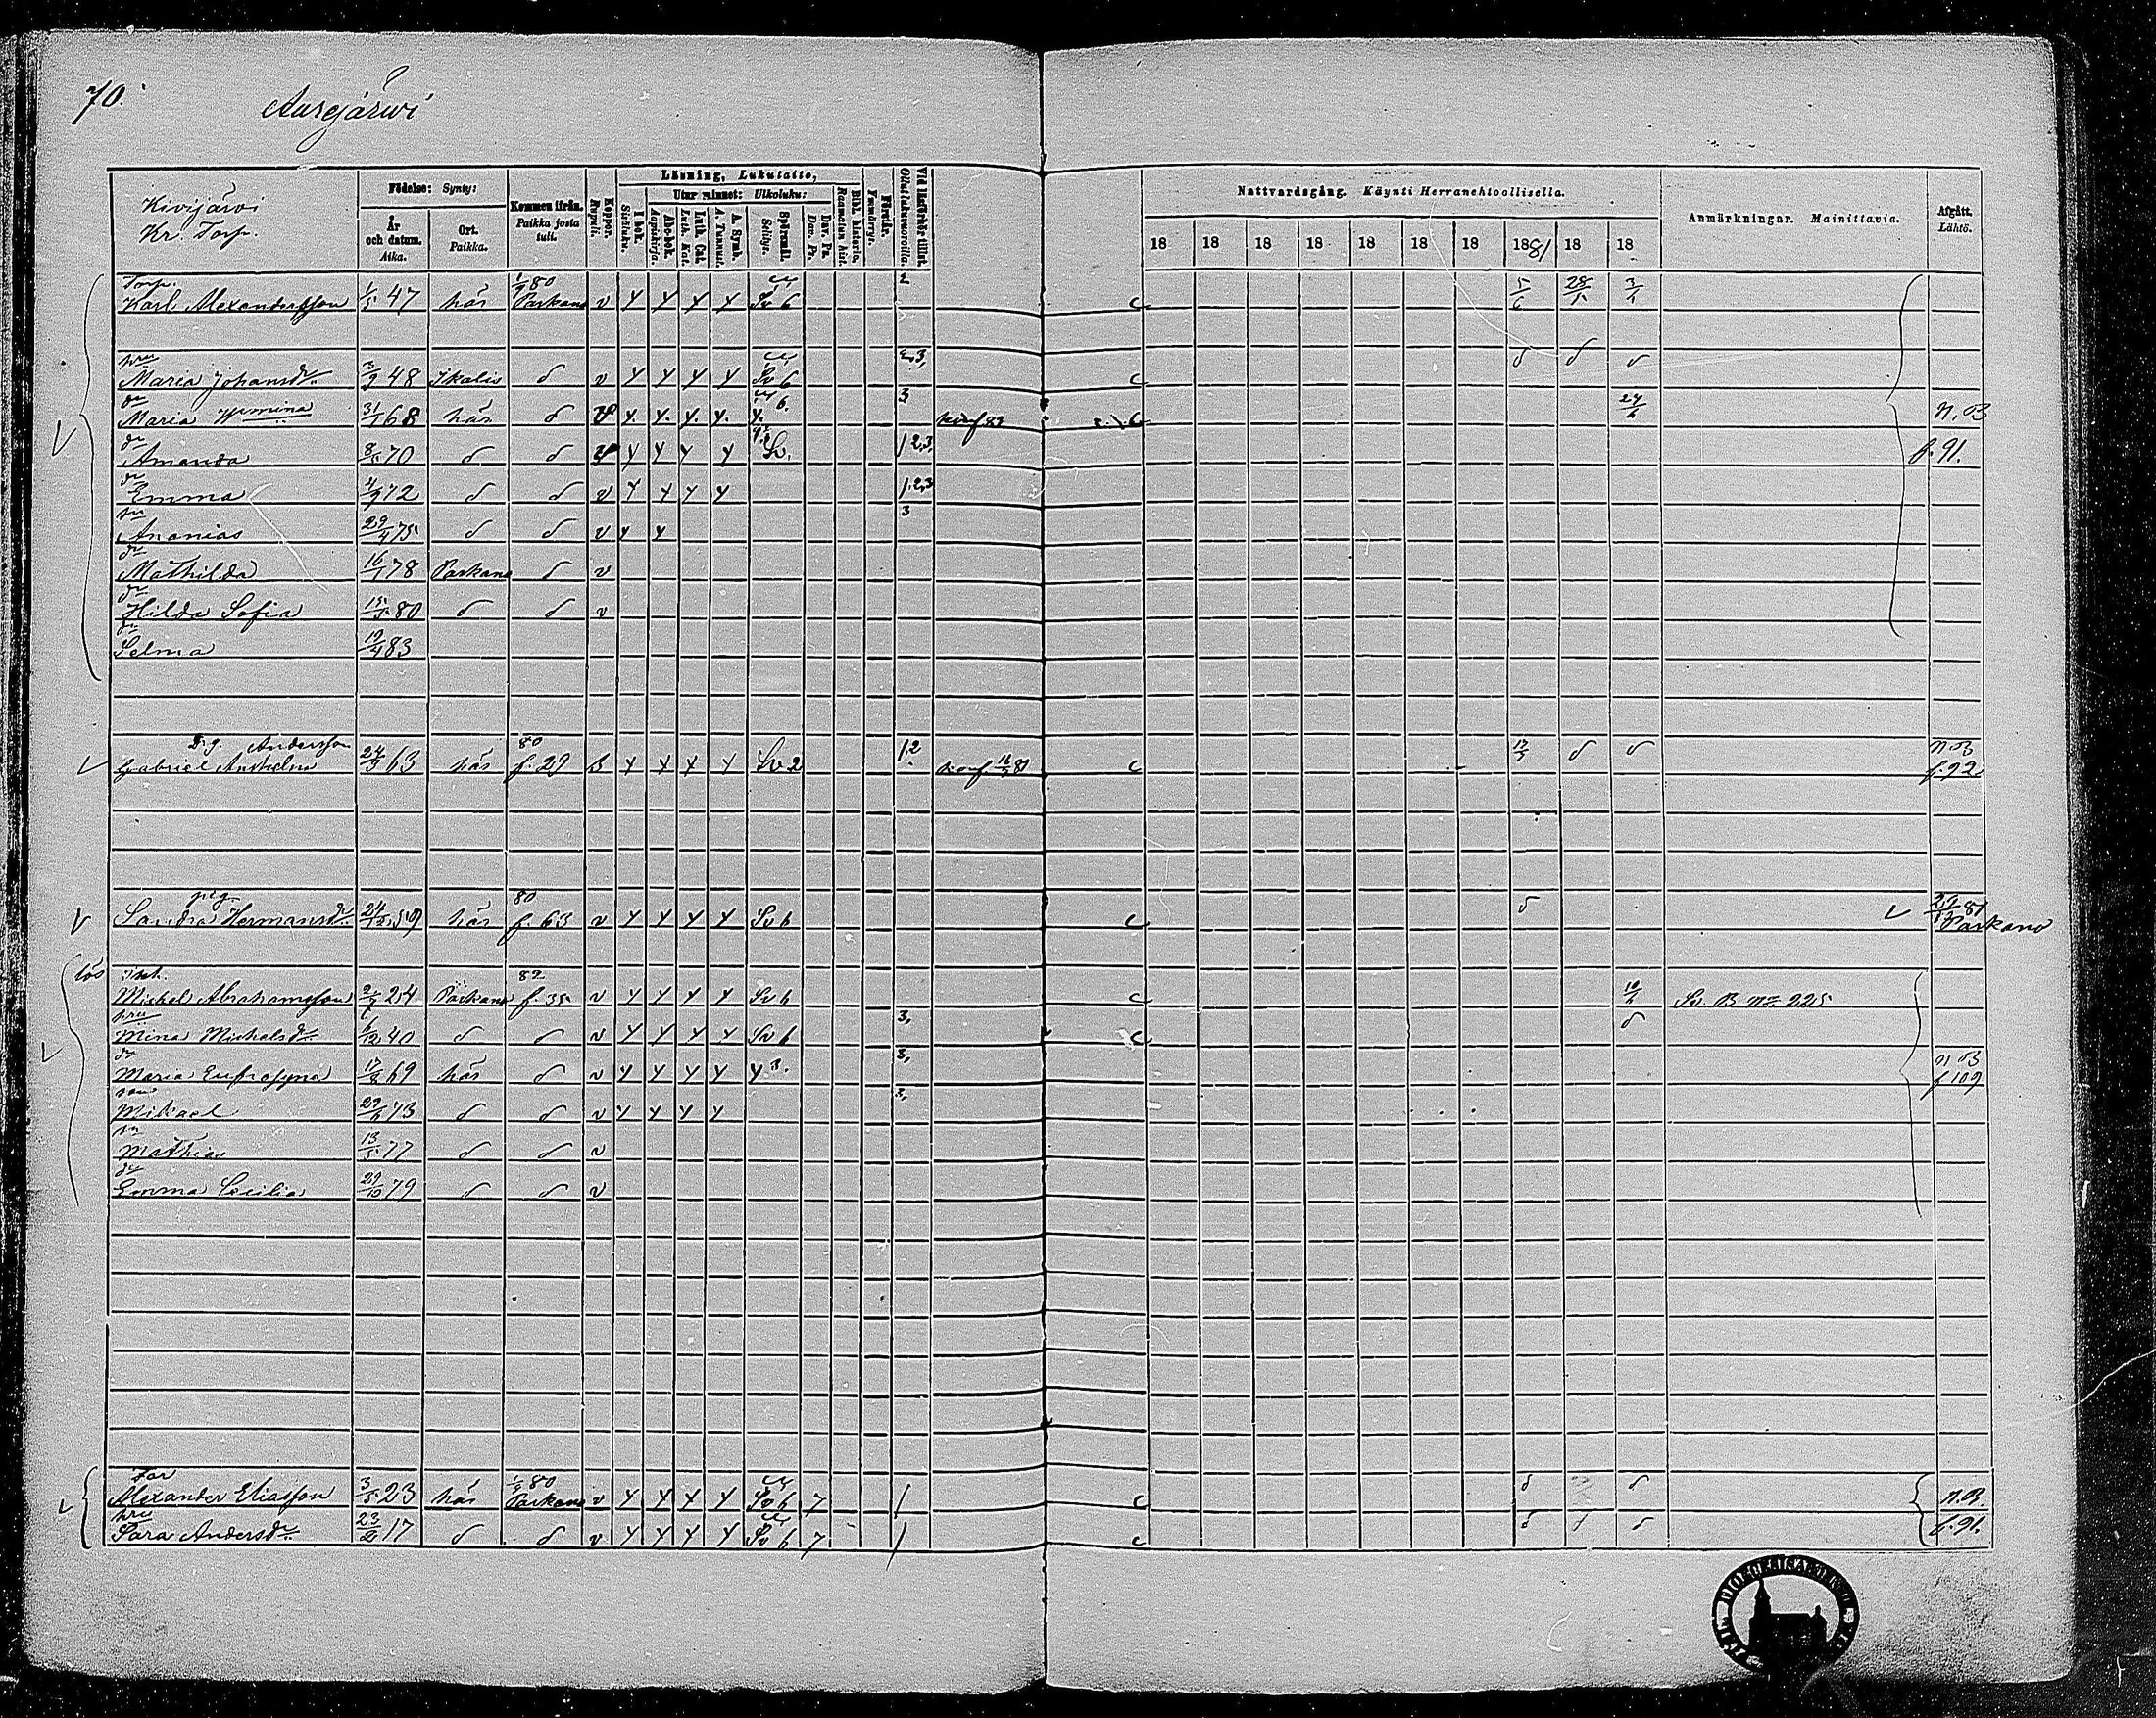 70.
Aurejärwi
Kivijärvi
Kr. Torp.
Födelse: Synty:
År och datum. Aika.
Ort. Paikka.
Kommen ifrån. Paikka josta tuli.
Koppor. Rupuli.
Läsning, Lukutaito,
I bok. Sisäluku.
Utur minnet: Ulkoluku:
Abc-bok. Aapiskirja.
Luth. Cat. Luth. Kat.
A. Symb. A. Tunnust.
Spörsmål. Selitys.
Dav. Ps. Dav. Ps.
Bibl. historia. Raamatun hist.
Förstår. Ymmärrys.
Vid läsförhör tillst. Ollut lukuvuorolla.
Nattvardsgång. Käynti Herranehtoollisella.
18 18 18 18 18 18 18 1881 18 18
Anmärkningar. Mainittavia.
Afgått. Lähtö.
Torp.
Karl Alexandersson 1/5 47 här 1/9 80 Parkano v y y y y Sv 6 2 c 5/6
hru
Maria Johansdr 3/9 48 Ikalis d v y y y y Sv 6 2,3, c d d d
dr
Maria Wemina 31/1 68 här d v y. y. y. y. y. 6. 3 konf 83 c 24/6 n.B
dr
Amanda 8/5 70 d d v y y y y Sv. 1 2,3, f. 91.
dr
Emma 4/9 72 d d v y y y y 1.2,3
sn
Ananias 29/4 75 d d v y y 3
dr
Mathilda 16/1 78 Parkano d v
dr
Hilda Sofia 15/5 80 d d v
dr
Selma 19/4 83
Drg. Andersson
Gabriel Anshelm 24/3 63 här 80 f. 29 B y y y y Sv 2 1.2 konf. 81 c d d n.B f. 92
pig.
Sandra Hermansdr 24/12 59 här 80 f. 63 v y y y y Sv 6 c d 81 Parkano
lös Inh.
Michel Abrahamsson 24 Parkano 82 f. 35. v y y y y Sv 6 c Sv. B nr 225
hru
Mina Michelsdr 6/12 40 d d v y y y y Sv 6 3, c d
dr
Maria Eufrosyna 17/8 69 här d v y y y y y 3. 3, n B f 109
son
Mikael 29/6 73 d d v y y y y 3,
sn
Mathias 13/5 77 d d v
dr
Emma Cecilia 29/10 79 d d v
Far
Alexander Eliasson 3/5 23 här 1/9 80 Parkano v y y y y Sv 6 7 1 c d d n.B
hru
Sara Andersdr 17 d d v y y y y Sv 6 7 1 c d d d f. 91.